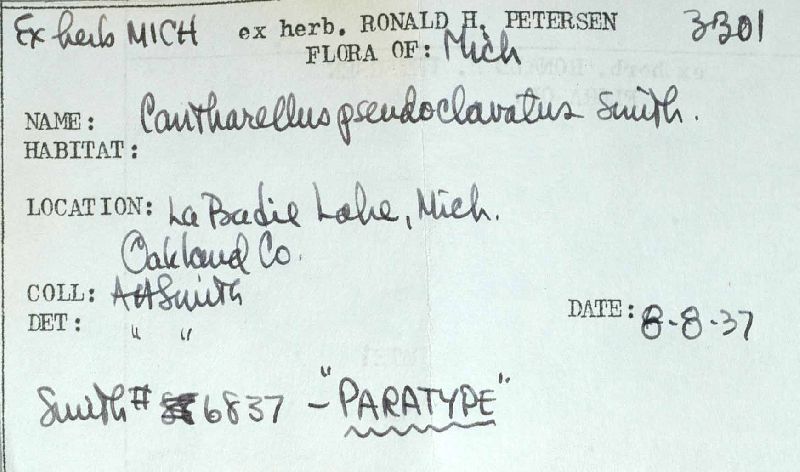 Ex herb MICH ex herb. RONALD H. PETERSEN 3301
FLORA OF: Mich
NAME: Cantharellus pseudoclavatus Smith.
HABITAT:
LOCATION: La Badie Lake, Mich.
Oakland Co.
COLL: AHSmith
DET: " "
DATE: 8-8-37
Smith # 6837 - "PARATYPE"